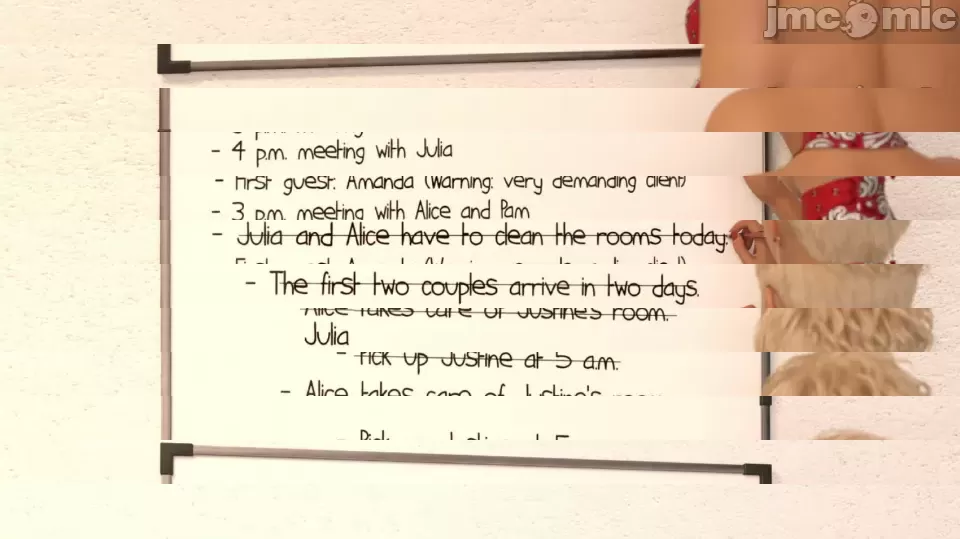 jmcomic
- 4 p.m. meeting with Julia
- First guest: Amanda (Warning: very demanding client)
- 3 p.m. meeting with Alice and Pam
- Julia and Alice have to clean the rooms today.
- The first two couples arrive in two days.
Alice takes care of Justine's room.
Julia
- Pick up Justine at 5 a.m.
- Alice takes care of Justine's room